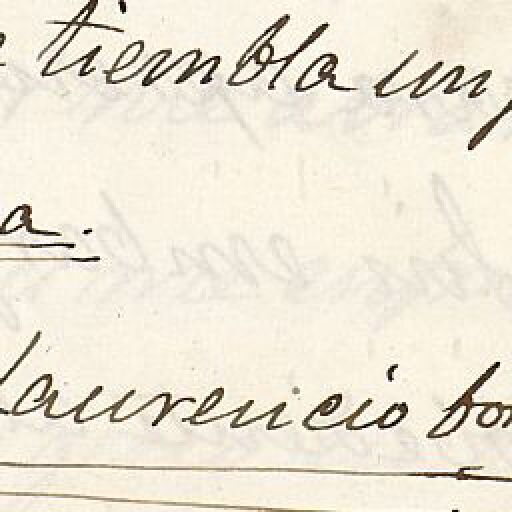 tiembla un
a.
Laurencio